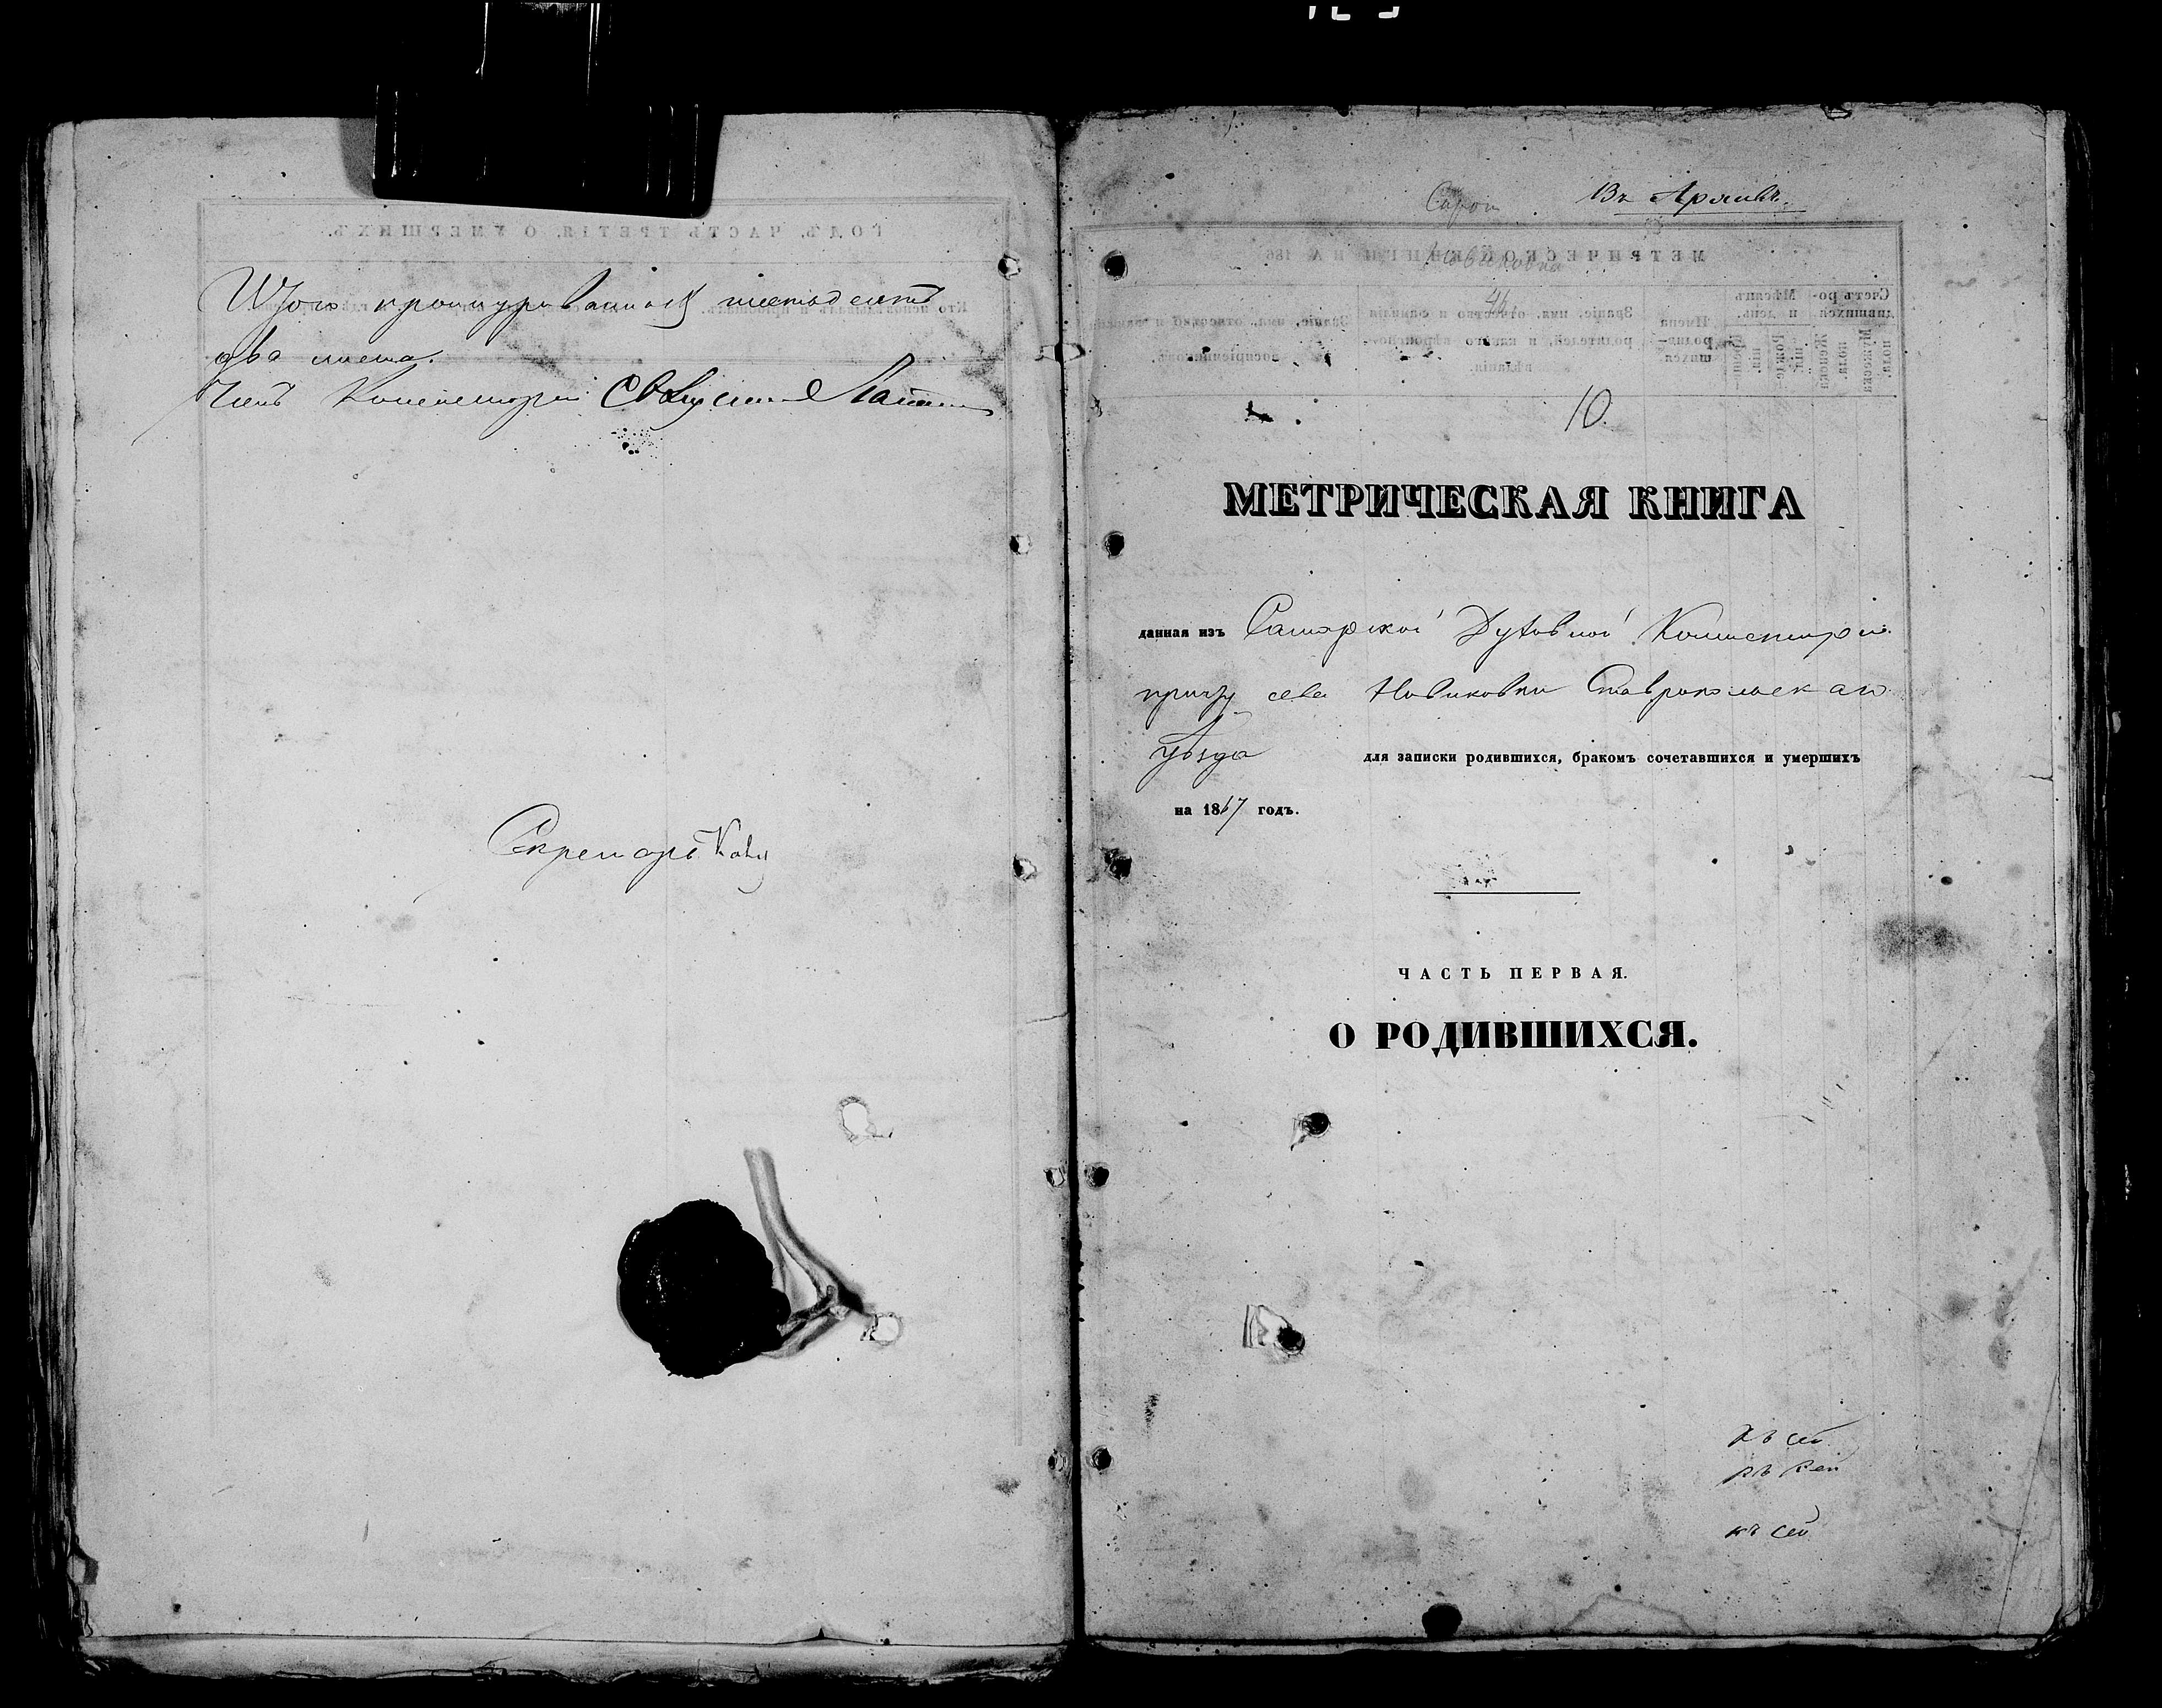 Итого пронумерованныхъ шестьдесятъ
два листа.
Членъ Консисторіи Священникъ
Секретарь
Въ Архивъ.
46
10.
МЕТРИЧЕСКАЯ КНИГА
данная изъ Самарской Духовной Консисторіи
причту села Новиковки Ставропольскаго
уѣзда для записки родившихся, бракомъ сочетавшихся и умершихъ
на 1867 годъ.
ЧАСТЬ ПЕРВАЯ.
О РОДИВШИХСЯ.
къ сей
къ сей